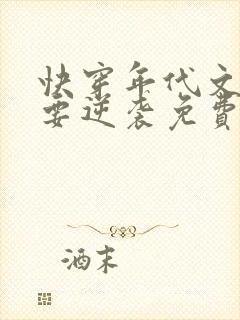 快穿年代文
要逆袭免費
酒末